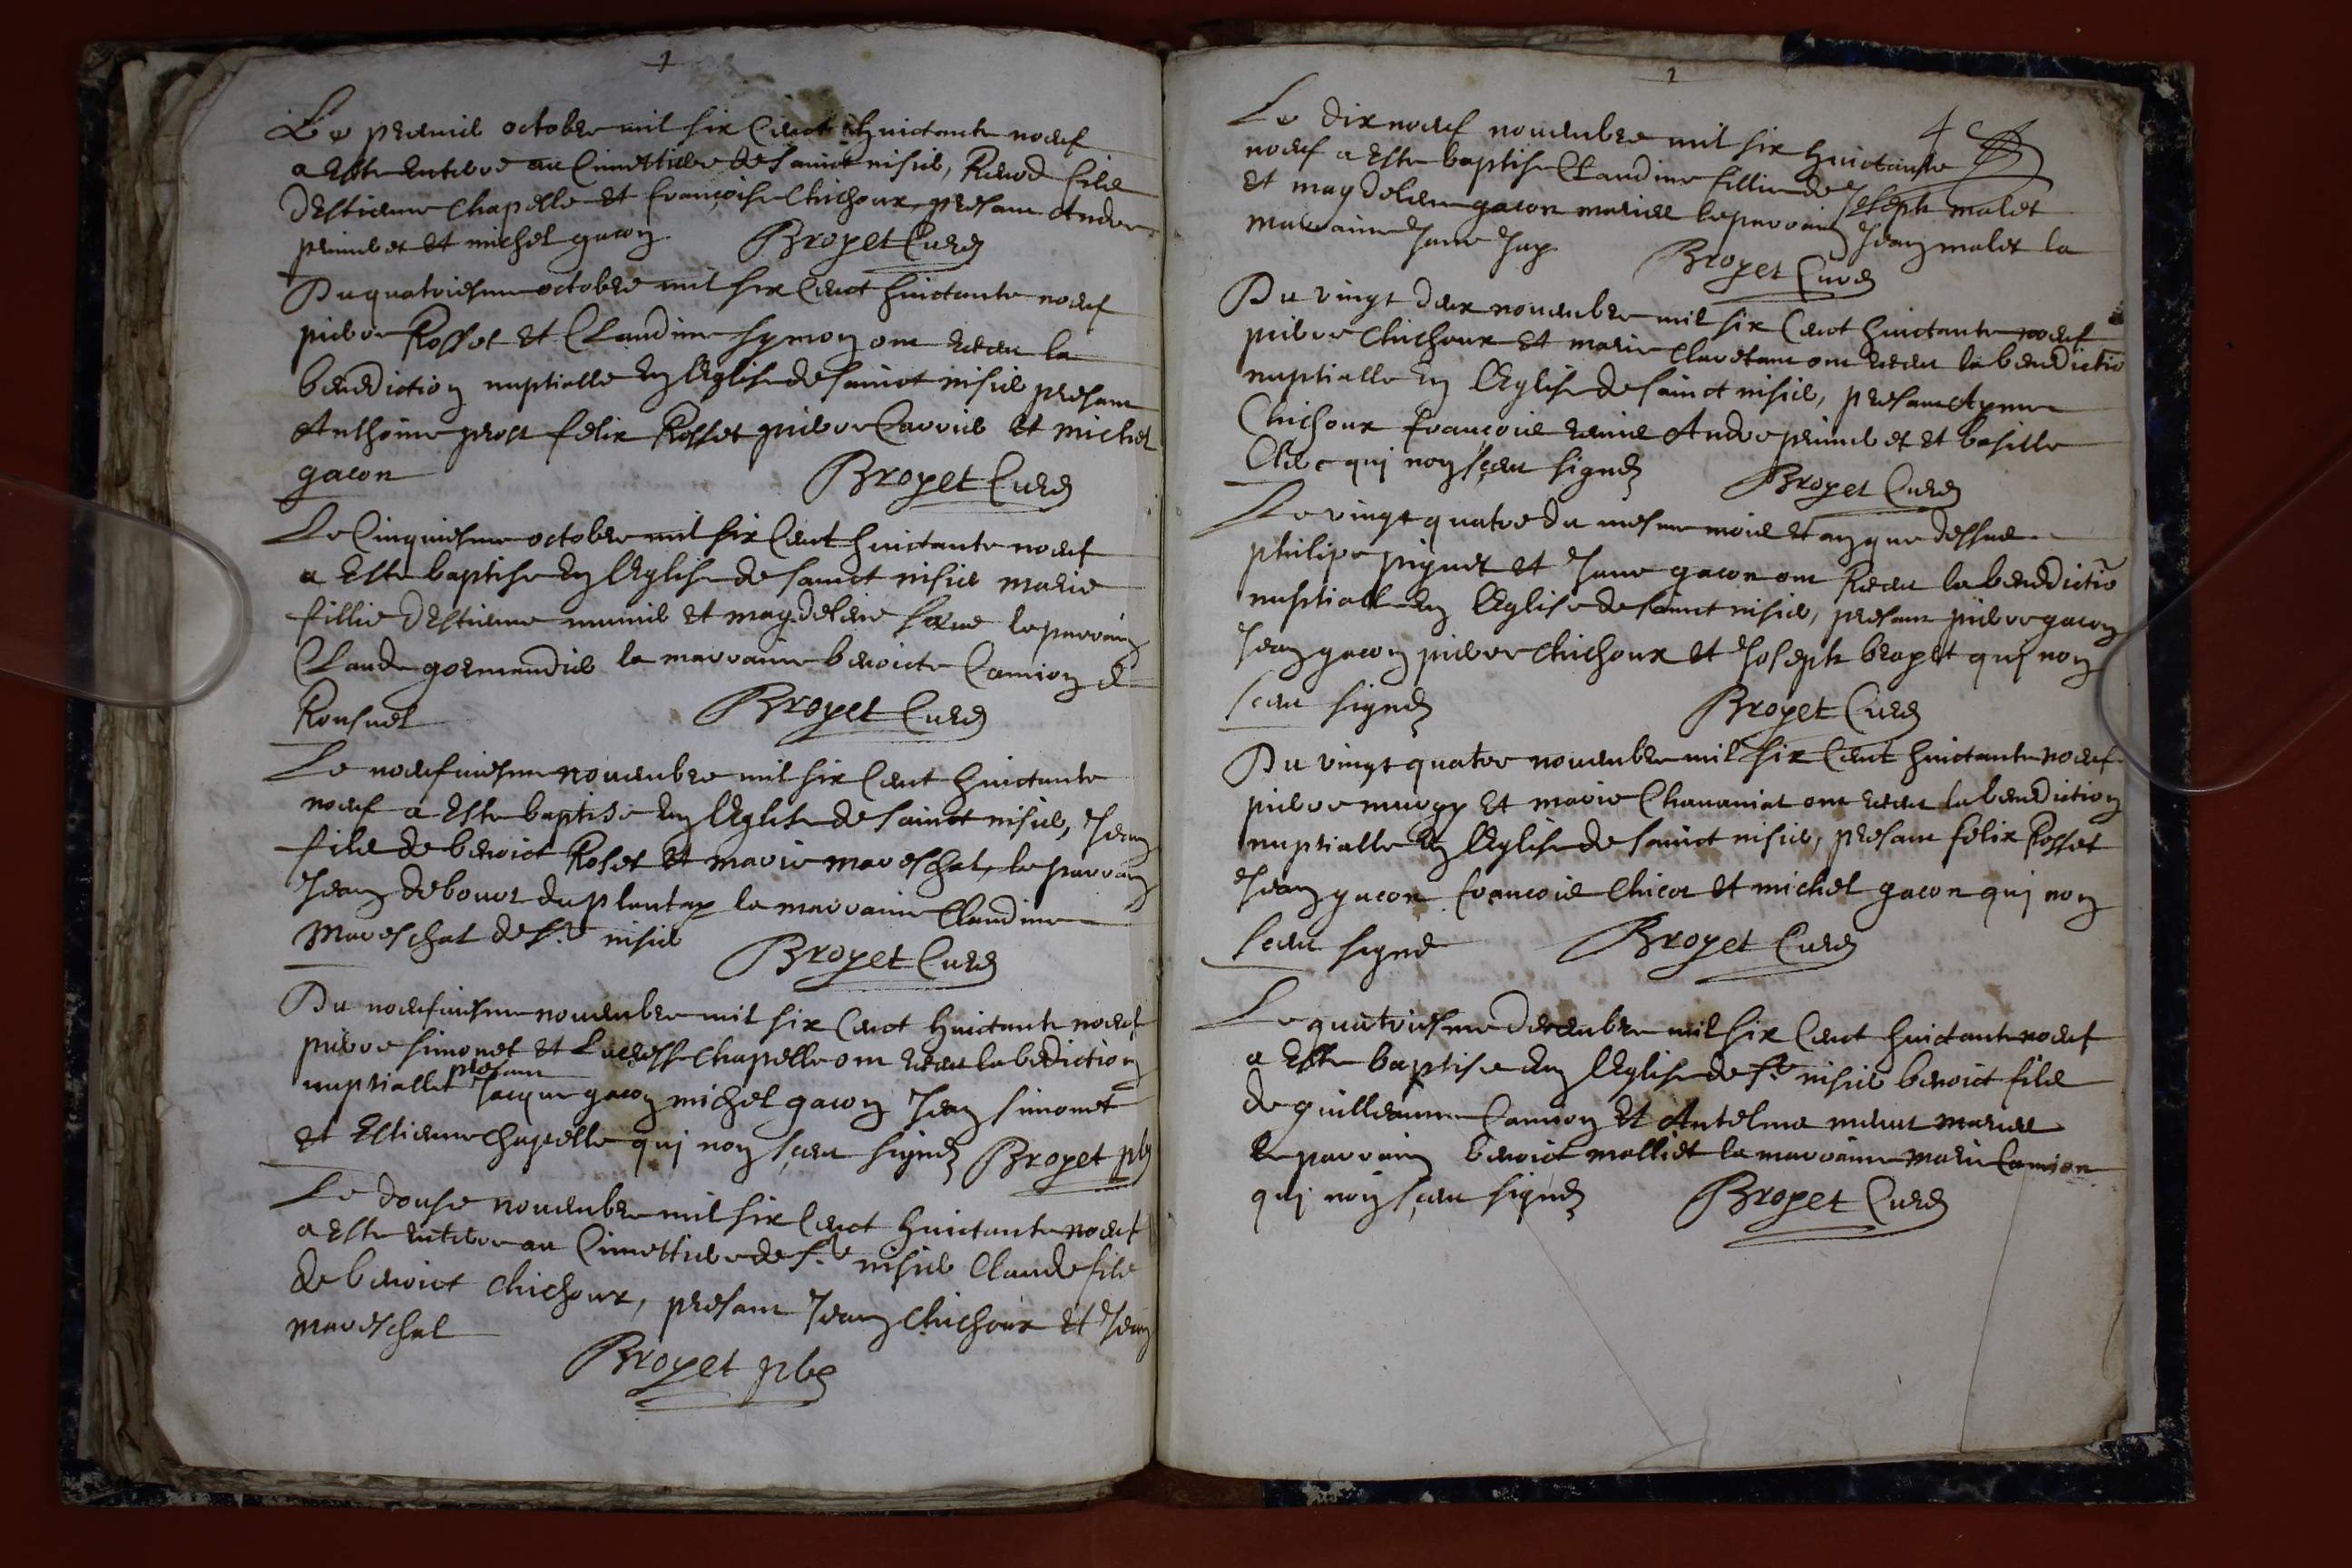 1
Le premier octobre mil six Cent huictante noeuf
a Este enterre au Cimettiere de sainct nisier, Renod fils
dEstienne Chapelle et françoise Chichoux, presant Andre
primb et et michel gacon Broyet Curé
Du quatriesme octobre mil six Cent huictante noeuf
pierre Rosset et Claudine symon ont receu la
benediction nuptialle En lEglise de sainct nisier presant
Anthoine prost felix Rosset pierre Carrier et michel
gacon Broyet Curé
Le Cinquiesme octobre mil six Cent huictante noeuf
a Este baptise En lEglise de sainct nisier marie
fillie dEstienne munier et magdeleine le parrain
Claude gormandier la marraine benoicte Camion de
Ronsuel Broyet Curé
Le noeufuiesme nouembre mil six Cent huictante
noeuf a Este baptise En lEglise de sainct nisier, Jean
fils de benoict Roset et marie mareschal, le parrain
Jean debouot du plantay la marraine Claudine
Mareschal de st nisier Broyet Curé
Du noeufuiesme nouembre mil six Cent huictante noeuf
pierre simonet et Lucresse Chapelle ont receu la bediction
nuptiallet presant Jacque gacon michel gacon Jean simonet
et Estienne Chapelle qui non sceu signé Broyet pb
Le douse nouembre mil six Cent huictante noeuf
a Este enterre au Cimettiere de st nisier Claude fils
de benoict Chichoux, presant Jean Chichoux et Jean
mareschal
Broyet pb
2
4
Le dix noeuf nouembre mil six huictante
noeuf a Este baptise Claudine fillie de Joseph malet
et magdelene gacon mariés le parrain Jean malet la
marraine Jane Jay Broyet Curé
Du vingt deux nouembre mil six Cent huictante noeuf
pierre Chichoux et marie Clavetant ont receu la benedictio
nuptialle En lEglise de sainct nisier, presant Ayme
Chichoux francois renie Andre primb et et basille
Clerc qui non sceu signé Broyet Curé
Le vingt quatre du mesme mois et an que dessus
philipe piquet et Jane gacon ont Receu la benedictio
nuptialle En lEglise de sainct nisier, presant pierre gacon
Jean gacon pierre Chichoux et Joseph brayet qui non
sceu signé Broyet Curé
Du vingt quatre nouembre mil six Cent huictante noeuf
pierre muogy et marie Chavaniat ont receu la benediction
nuptialle En lEglise de sainct nisier, presant felix Rosset
Jean gacon francois Chicot et michel gacon qui non
sceu signé Broyet Curé
Le quatriesme decembre mil six Cent huictante noeuf
a Este baptise En lEglise de st nisier benoict fils
de guilleaume Camion et Antelme mariés
le parrain benoict malliet la marraine marie Camion
qui non sceu signé Broyet Curé